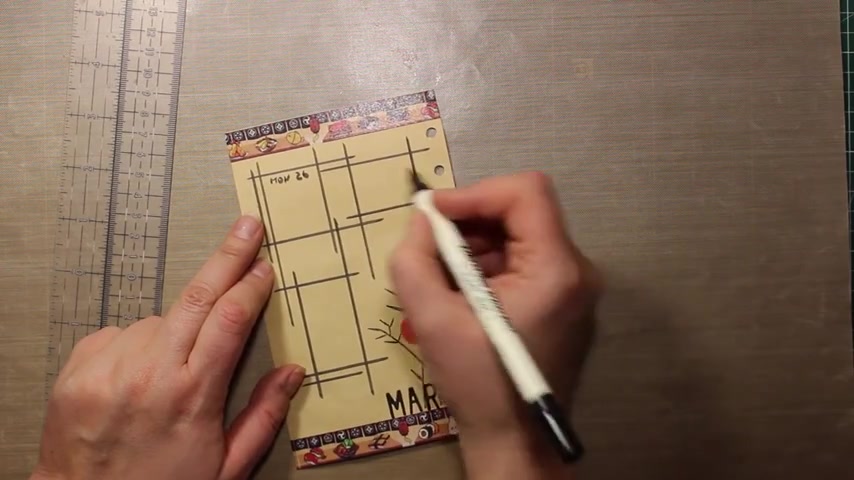 MON 26
MAR